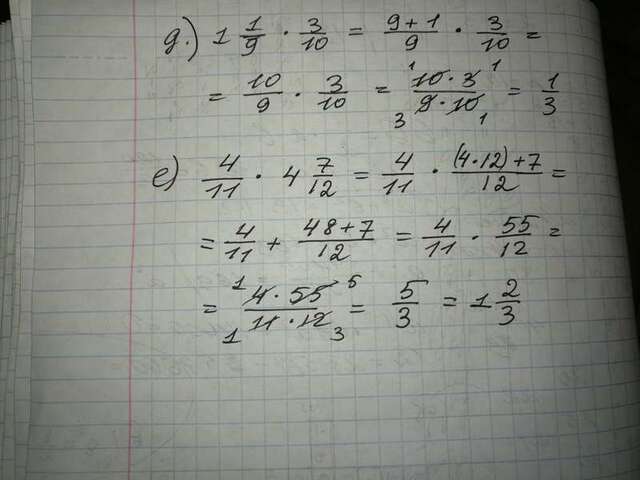 д.) 1 1/9 · 3/10 = (9+1)/9 · 3/10 =
= 10/9 · 3/10 = (10·3)/(9·10) 1 1 3 1 = 1/3
е) 4/11 · 4 7/12 = 4/11 · ((4·12)+7)/12 =
= 4/11 + (48+7)/12 = 4/11 · 55/12 =
= (4·55)/(11·12) 1 5 1 3 = 5/3 = 1 2/3